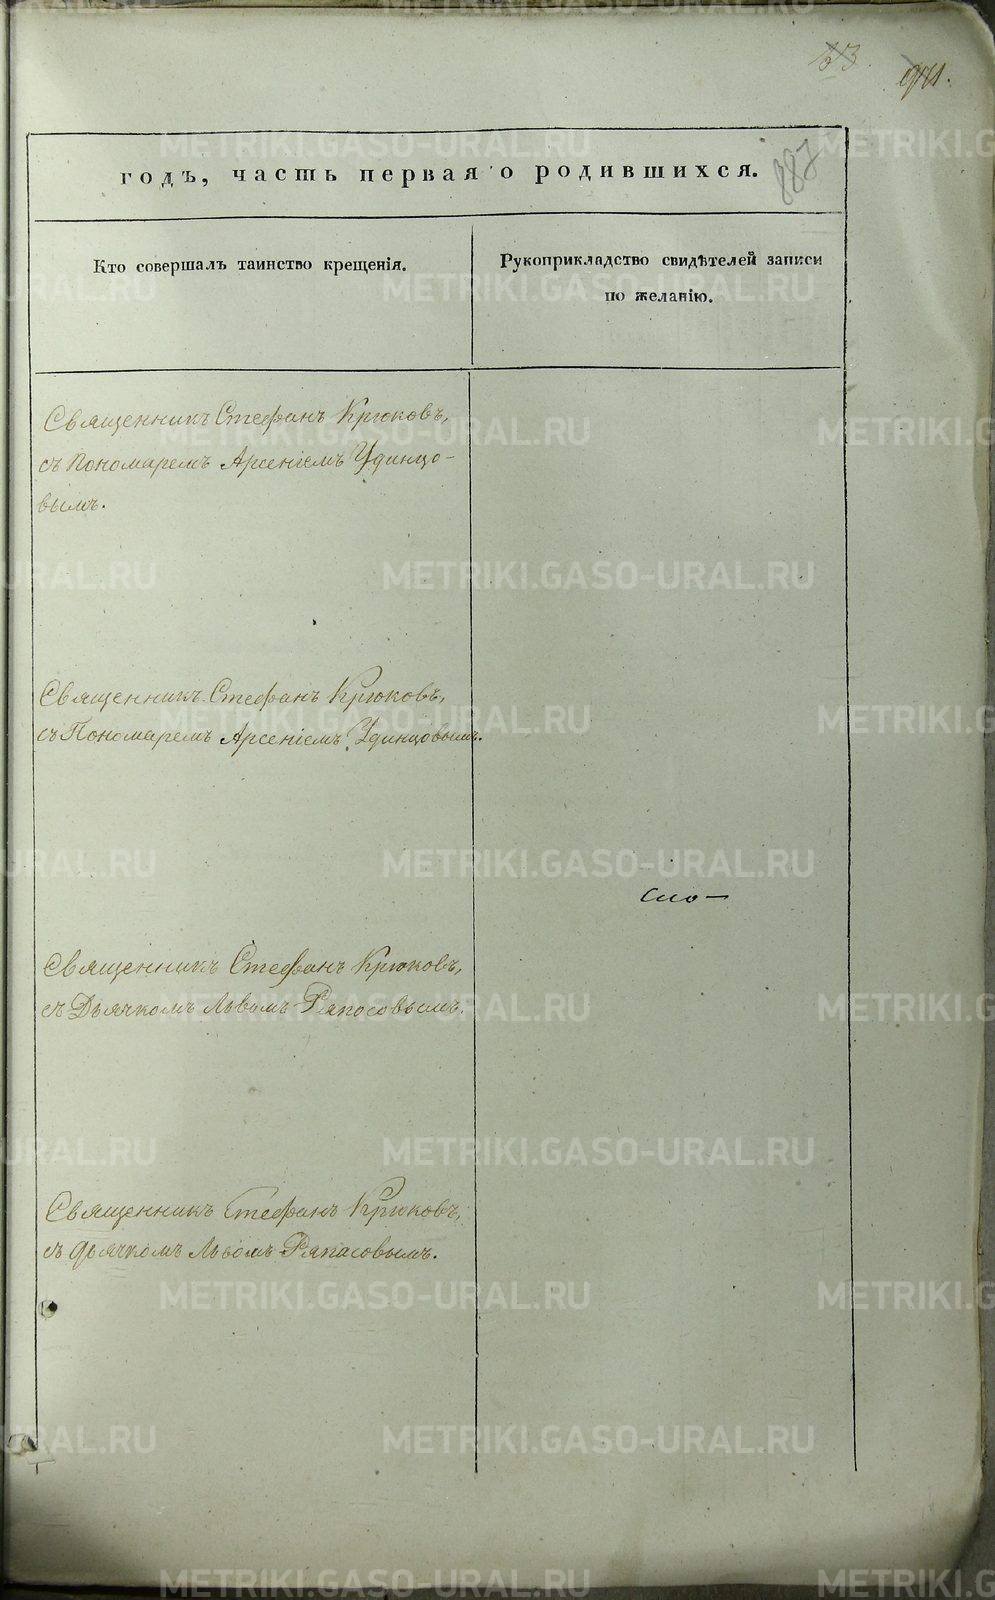 887
годъ, часть первая о родившихся.
Кто совершалъ таинство крещенія.
Рукоприкладство свидѣтелей записи
по желанію.
Священникъ Стефанъ Крюковъ,
съ Пономаремъ Арсеніемъ Удинцо-
вымъ.
Священникъ Стефанъ Крюковъ,
съ Пономаремъ Арсеніемъ Удинцовымъ.
Священникъ Стефанъ Крюковъ,
съ Дьячкомъ Львомъ Ряпосовымъ.
Священникъ Стефанъ Крюковъ,
съ дьячкомъ Львомъ Ряпасовымъ.
METRIKI.GASO-URAL.RU